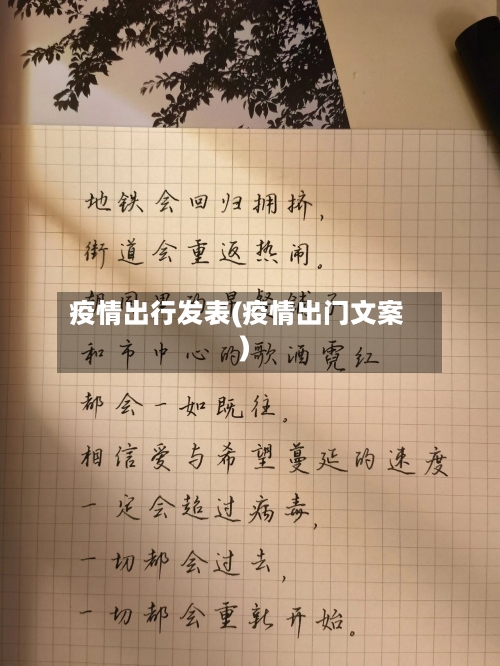 地铁会回归拥挤，
街道会重返热闹。
疫情出行发表(疫情出门文案
)
和市中心的歌酒霓红
都会一如既往。
相信爱与希望蔓延的速度
一定会超过病毒，
一切都会过去，
一切都会重新开始。